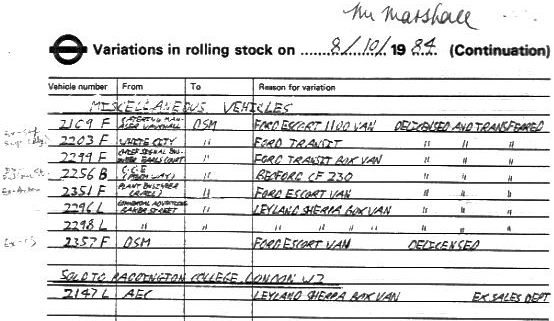 Mr Marshall
Variations in rolling stock on 8/10/1984 (Continuation)
Vehicle number From To Reason for variation
MISCELLANEOUS VEHICLES
2169 F CATERING MANAGER VAUXHALL DSM FORD ESCORT 1100 VAN DELICENSED AND TRANSFERRED
2203 F WHITE CITY " FORD TRANSIT " " "
2299 F CHIEF SIGNAL EARLS COURT " FORD TRANSIT BOX VAN " " "
2256 B C.C.E " BEDFORD CF 230 " " "
2351 F PLANT " FORD ESCORT VAN " " "
2296 L COMMERCIAL ADVERTISING BAKER STREET " LEYLAND SHERPA BOX VAN " " "
2298 L " " " " " " " "
2357 F DSM FORD ESCORT VAN DELICENSED
SOLD TO PADDINGTON COLLEGE, LONDON W2
2147 L AEC LEYLAND SHERPA BOX VAN EX SALES DEPT